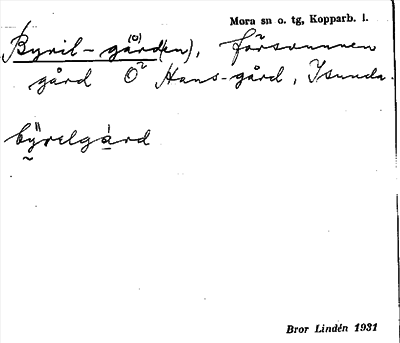 Mora sn o. tg, Kopparb. l.
Byril-gård(en), försvunnen
gård O² Hans-gård, Isunda.
byrelgård
Bror Lindén 1931